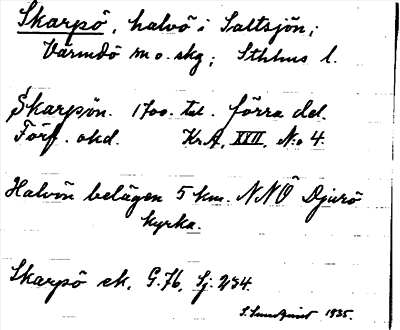 Skarpö, halvö i Saltsjön;
Värmdö m o. skg; Sthlms l.
Skarpön. 1700. tal. förra del.
Förf. okd. Kr.A. XXII, No 4.
Halvön belägen 5 km. NNÖ Djurö
kyrka.
Skarpö ek. G.76, Sj. 234.
S. Sundqvist 1935.